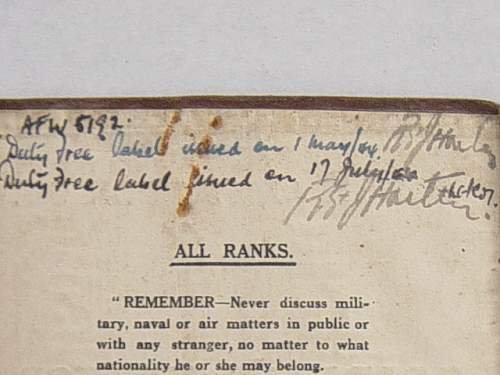 AFW 5192.
Duty Free label issued on 1 May/44
Duty Free label issued on 17 July/44
ALL RANKS.
"REMEMBER—Never discuss mili-
tary, naval or air matters in public or
with any stranger, no matter to what
nationality he or she may belong.